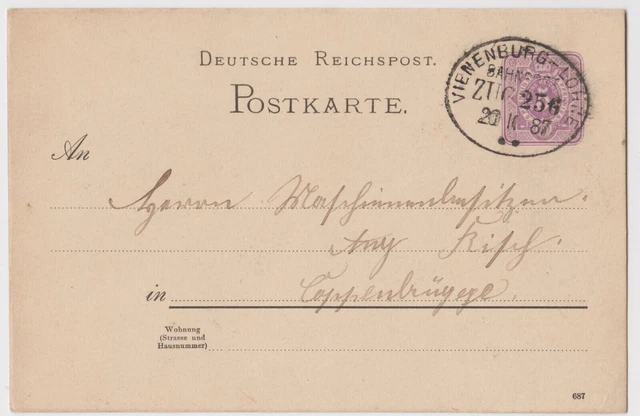 DEUTSCHE REICHSPOST.
POSTKARTE.
VIENENBURG-LÖHNE
BAHNPOST
ZUG 256
20 10 87
An
Herrn Maschinenbesitzer
Aug Kisch.
in Coppenbrügge
Wohnung
(Strasse und
Hausnummer)
687